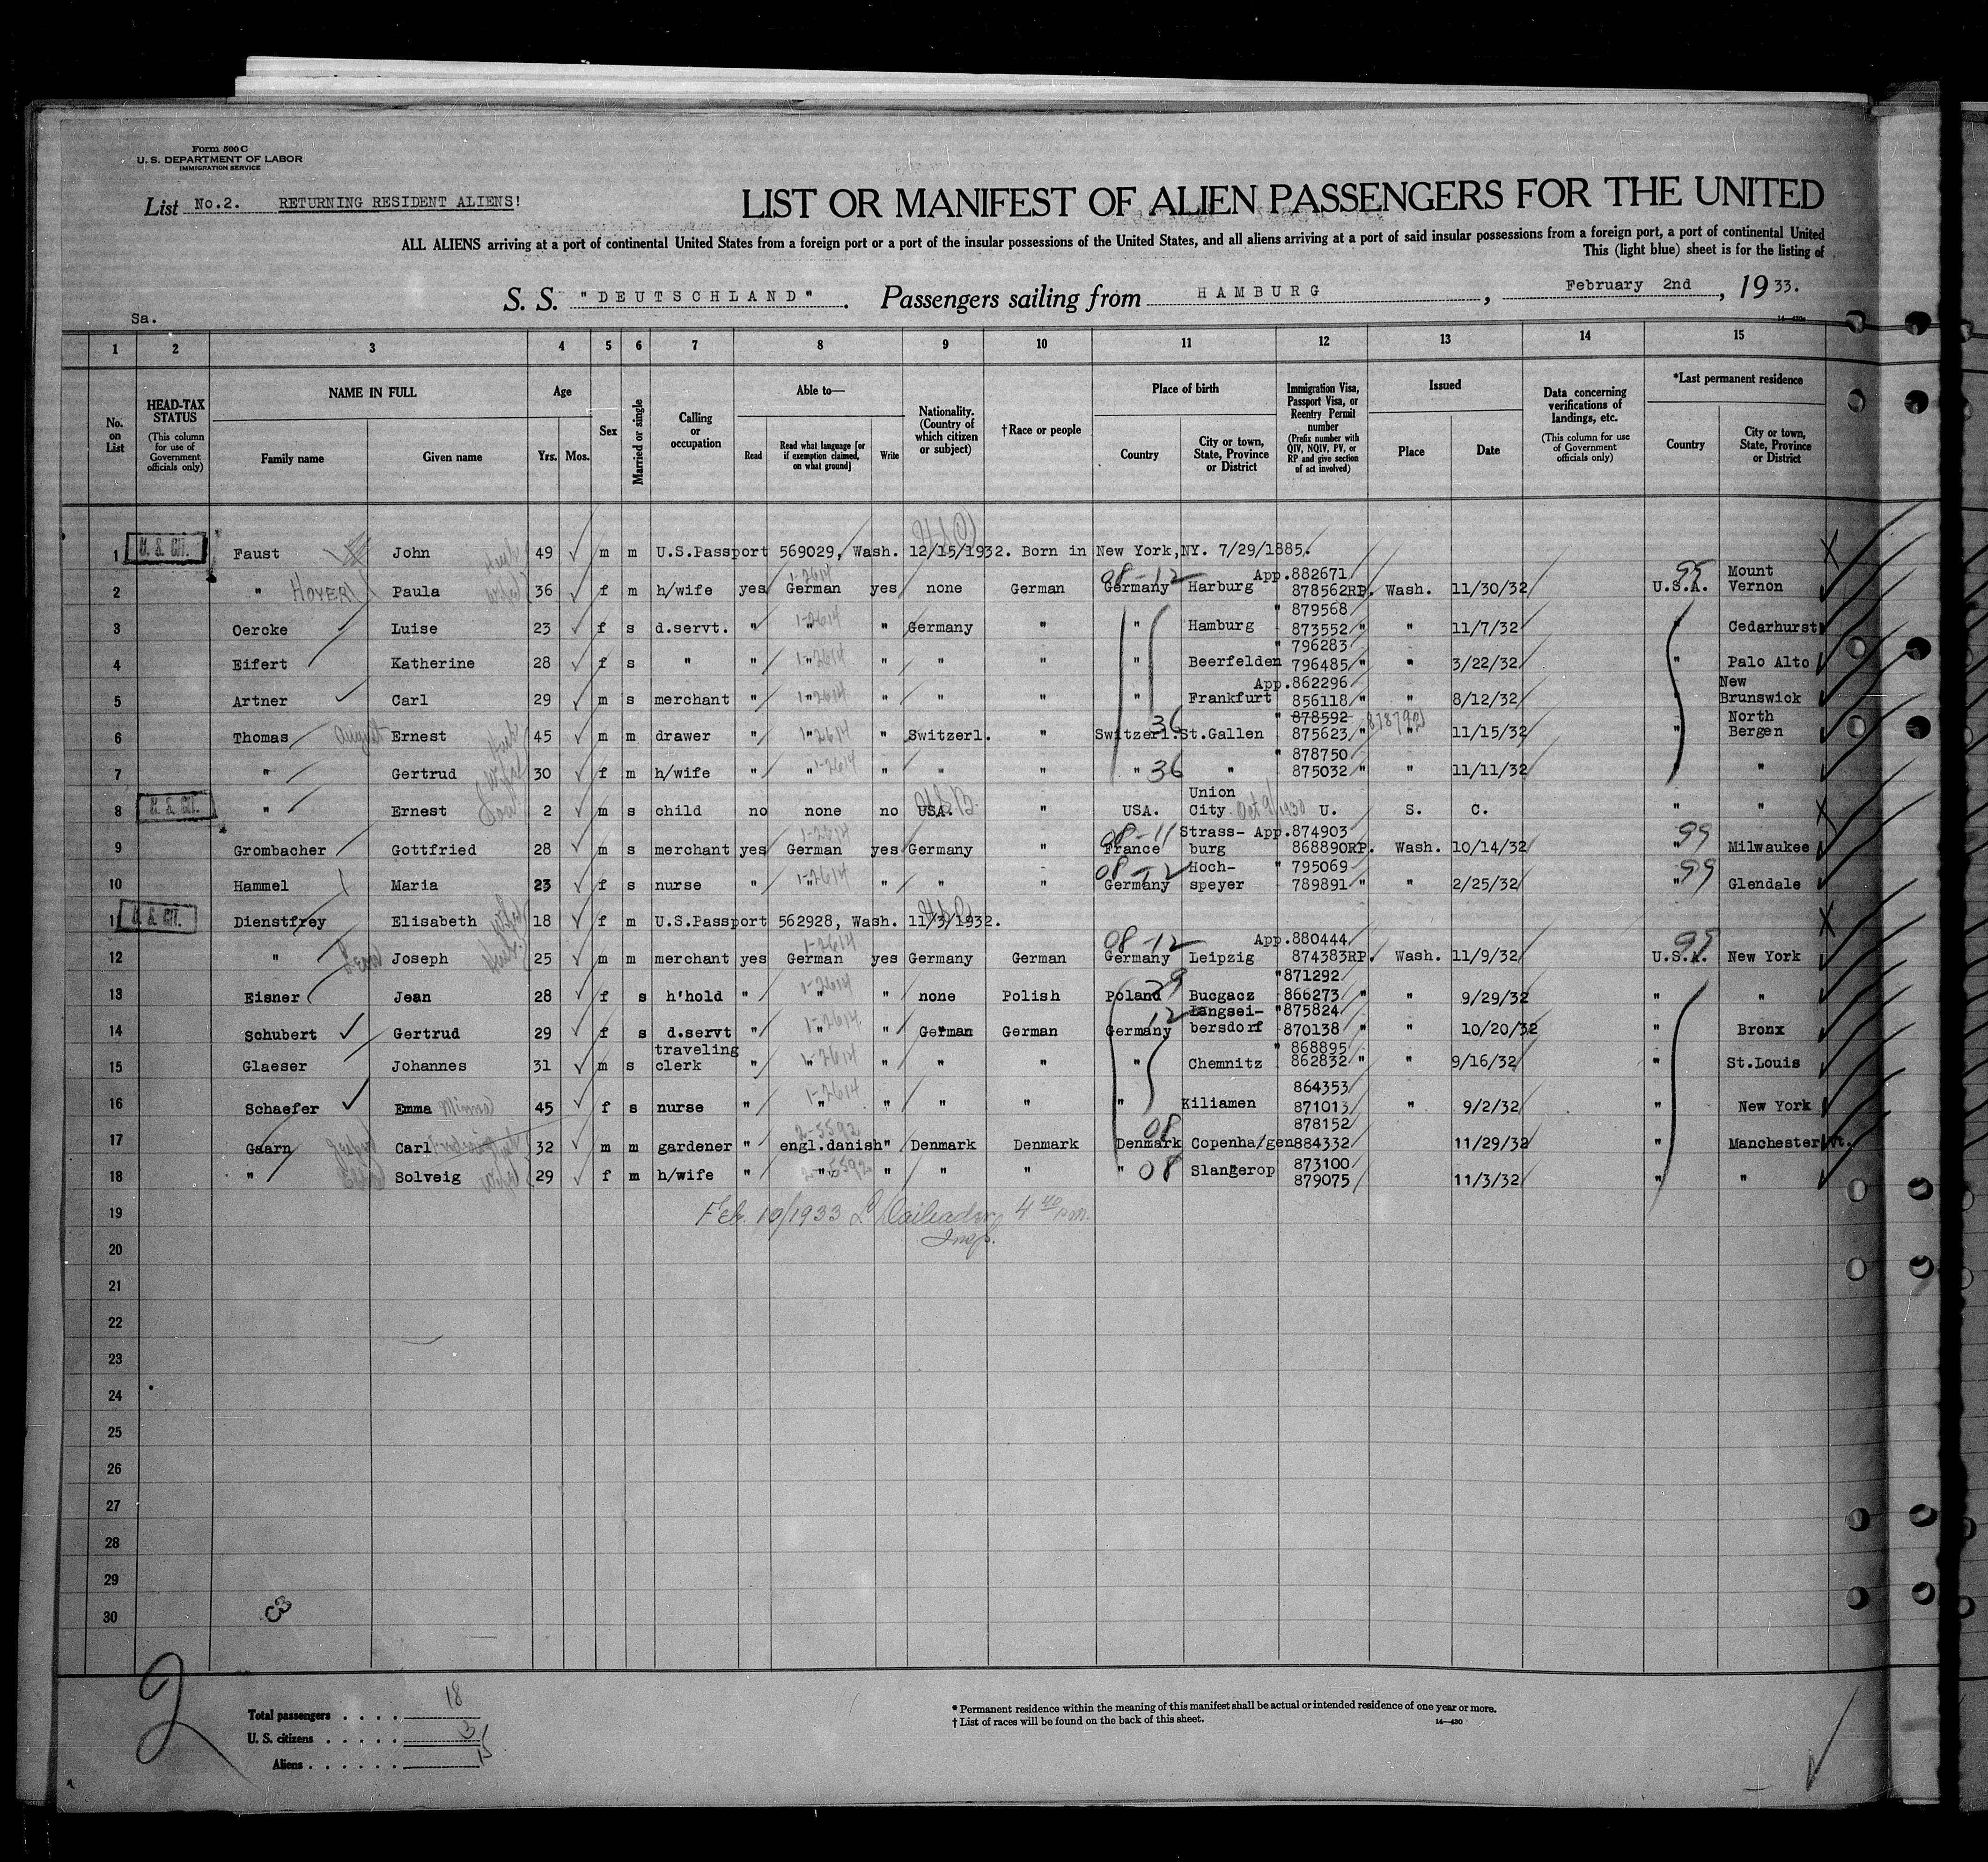 Form 500 C
U. S. DEPARTMENT OF LABOR
IMMIGRATION SERVICE
List No.2. RETURNING RESIDENT ALIENS!
LIST OR MANIFEST OF ALIEN PASSENGERS FOR THE UNITED
ALL ALIENS arriving at a port of continental United States from a foreign port or a port of the insular possessions of the United States, and all aliens arriving at a port of said insular possessions from a foreign port, a port of continental United
This (light blue) sheet is for the listing of
S. S. "DEUTSCHLAND". Passengers sailing from HAMBURG, February 2nd, 1933.
Sa.
1 2 3 4 5 6 7 8 9 10 11 12 13 14 15
No. on List
HEAD-TAX STATUS (This column for use of Government officials only)
NAME IN FULL Family name Given name
Age Yrs. Mos.
Sex
Married or single
Calling or occupation
Able to— Read Read what language [or if exemption claimed, on what ground] Write
Nationality. (Country of which citizen or subject)
†Race or people
Place of birth Country City or town, State, Province or District
Immigration Visa, Passport Visa, or Reentry Permit number (Prefix number with QIV, NQIV, PV, or RP and give section of act involved)
Issued Place Date
Data concerning verifications of landings, etc. (This column for use of Government officials only)
*Last permanent residence Country City or town, State, Province or District
1 U. S. CIT. Faust John 49 m m U.S.Passport 569029, Wash. 12/15/1932. Born in New York,NY. 7/29/1885.
2 " HOYER Paula 36 f m h/wife yes 1-2614 German yes none German 08-12 Germany Harburg App.882671 878562RP. Wash. 11/30/32 99 U.S.A. Mount Vernon
3 Oercke Luise 23 f s d.servt. " 1-2614 " " Germany " " Hamburg " 879568 873552 " " 11/7/32 " Cedarhurst
4 Eifert Katherine 28 f s " " 1-2614 " " " " " Beerfelden " 796283 796485 " " 3/22/32 " Palo Alto
5 Artner Carl 29 m s merchant " 1-2614 " " " " " Frankfurt App.862296 856118 " " 8/12/32 " New Brunswick
6 Thomas August Ernest 45 m m drawer " 1-2614 " " Switzerl. " 36 Switzerl. St.Gallen " 878592 878792 875623 " " 11/15/32 " North Bergen
7 " Gertrud 30 f m h/wife " 1-2614 " " " " " 36 " " 878750 875032 " " 11/11/32 " "
8 U. S. CIT. " Ernest 2 m s child no none no USA. " USA. Union City Oct 9/1930 U. S. C. " "
9 Grombacher Gottfried 28 m s merchant yes 1-2614 German yes Germany " 08-11 France Strass- burg App.874903 868890RP. Wash. 10/14/32 99 " Milwaukee
10 Hammel Maria 23 f s nurse " 1-2614 " " " " 08-12 Germany Hoch- speyer " 795069 789891 " " 2/25/32 99 " Glendale
11 U. S. CIT. Dienstfrey Elisabeth 18 f m U.S.Passport 562928, Wash. 11/3/1932.
12 " Joseph 25 m m merchant yes 1-2614 German yes Germany German 08-12 Germany Leipzig App.880444 874383RP. Wash. 11/9/32 99 U.S.A. New York
13 Eisner Jean 28 f s h'hold " 1-2614 " " none Polish Poland Bucgacz "871292 866273 " " 9/29/32 " "
14 Schubert Gertrud 29 f s d.servt " 1-2614 " " German German 12 Germany Langsei- bersdorf "875824 870138 " " 10/20/32 " Bronx
15 Glaeser Johannes 31 m s traveling clerk " 1-2614 " " " " " Chemnitz " 868895 862832 " " 9/16/32 " St.Louis
16 Schaefer Emma Minna 45 f s nurse " 1-2614 " " " " " Kiliamen 864353 871013 " 9/2/32 " New York
17 Gaarn Carl 32 m m gardener " 2-5592 engl.danish " Denmark Denmark 08 Denmark Copenha/gen 878152 884332 11/29/32 " Manchester Vt.
18 " Solveig 29 f m h/wife " 2-5592 " " " " " 08 Slangerop 873100 879075 11/3/32 " "
19 Feb. 10/1933 4 40 pm.
Insp.
20
21
22
23
24
25
26
27
28
29
30
3
2
Total passengers . . . . 18
U. S. citizens . . . . . 3
Aliens . . . . . . 15
* Permanent residence within the meaning of this manifest shall be actual or intended residence of one year or more.
† List of races will be found on the back of this sheet. 14—430